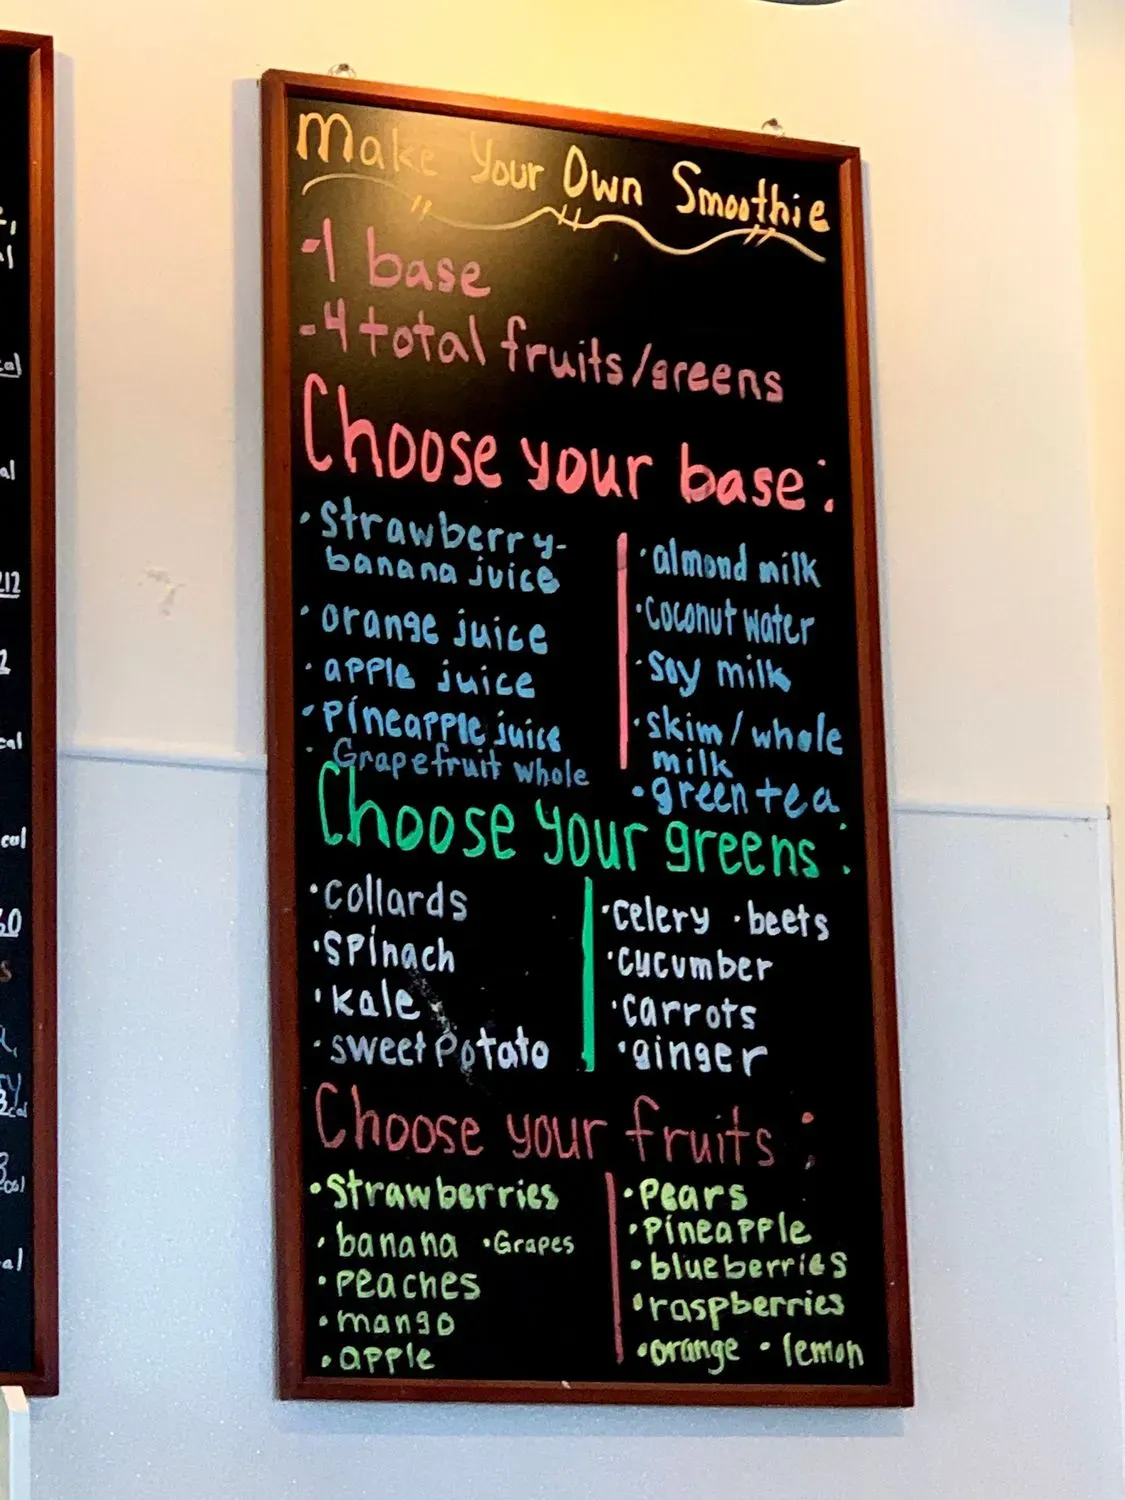 Make Your Own Smoothie
-1 base
-4 total fruits/greens
Choose your base:
• strawberry-
banana juice
• orange juice
• apple juice
• pineapple juice
• Grapefruit whole
• almond milk
• coconut water
• soy milk
• skim/whole
milk
• green tea
Choose your greens:
• collards
• spinach
• kale
• sweet potato
• celery • beets
• cucumber
• carrots
• ginger
Choose your fruits:
• strawberries
• banana • Grapes
• peaches
• mango
• apple
• pears
• pineapple
• blueberries
• raspberries
• orange • lemon
cal
212
cal
cal